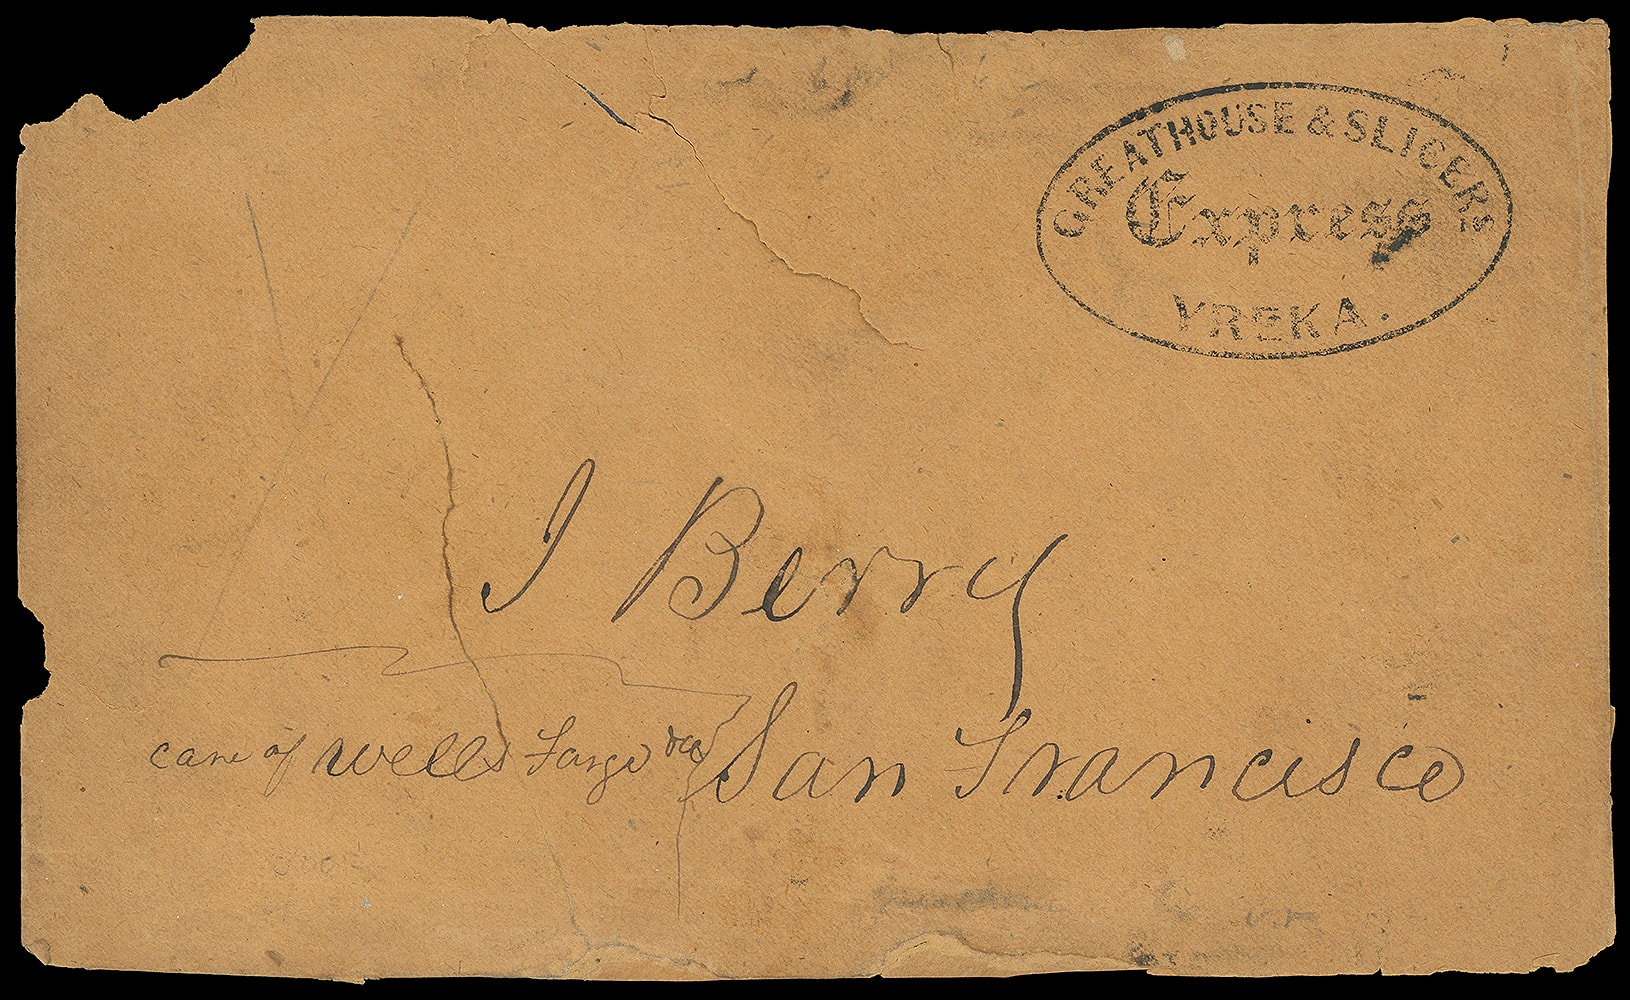 GREATHOUSE & SLICERS
Express
YREKA.
J Berry
care of Wells Fargo & Co San Francisco